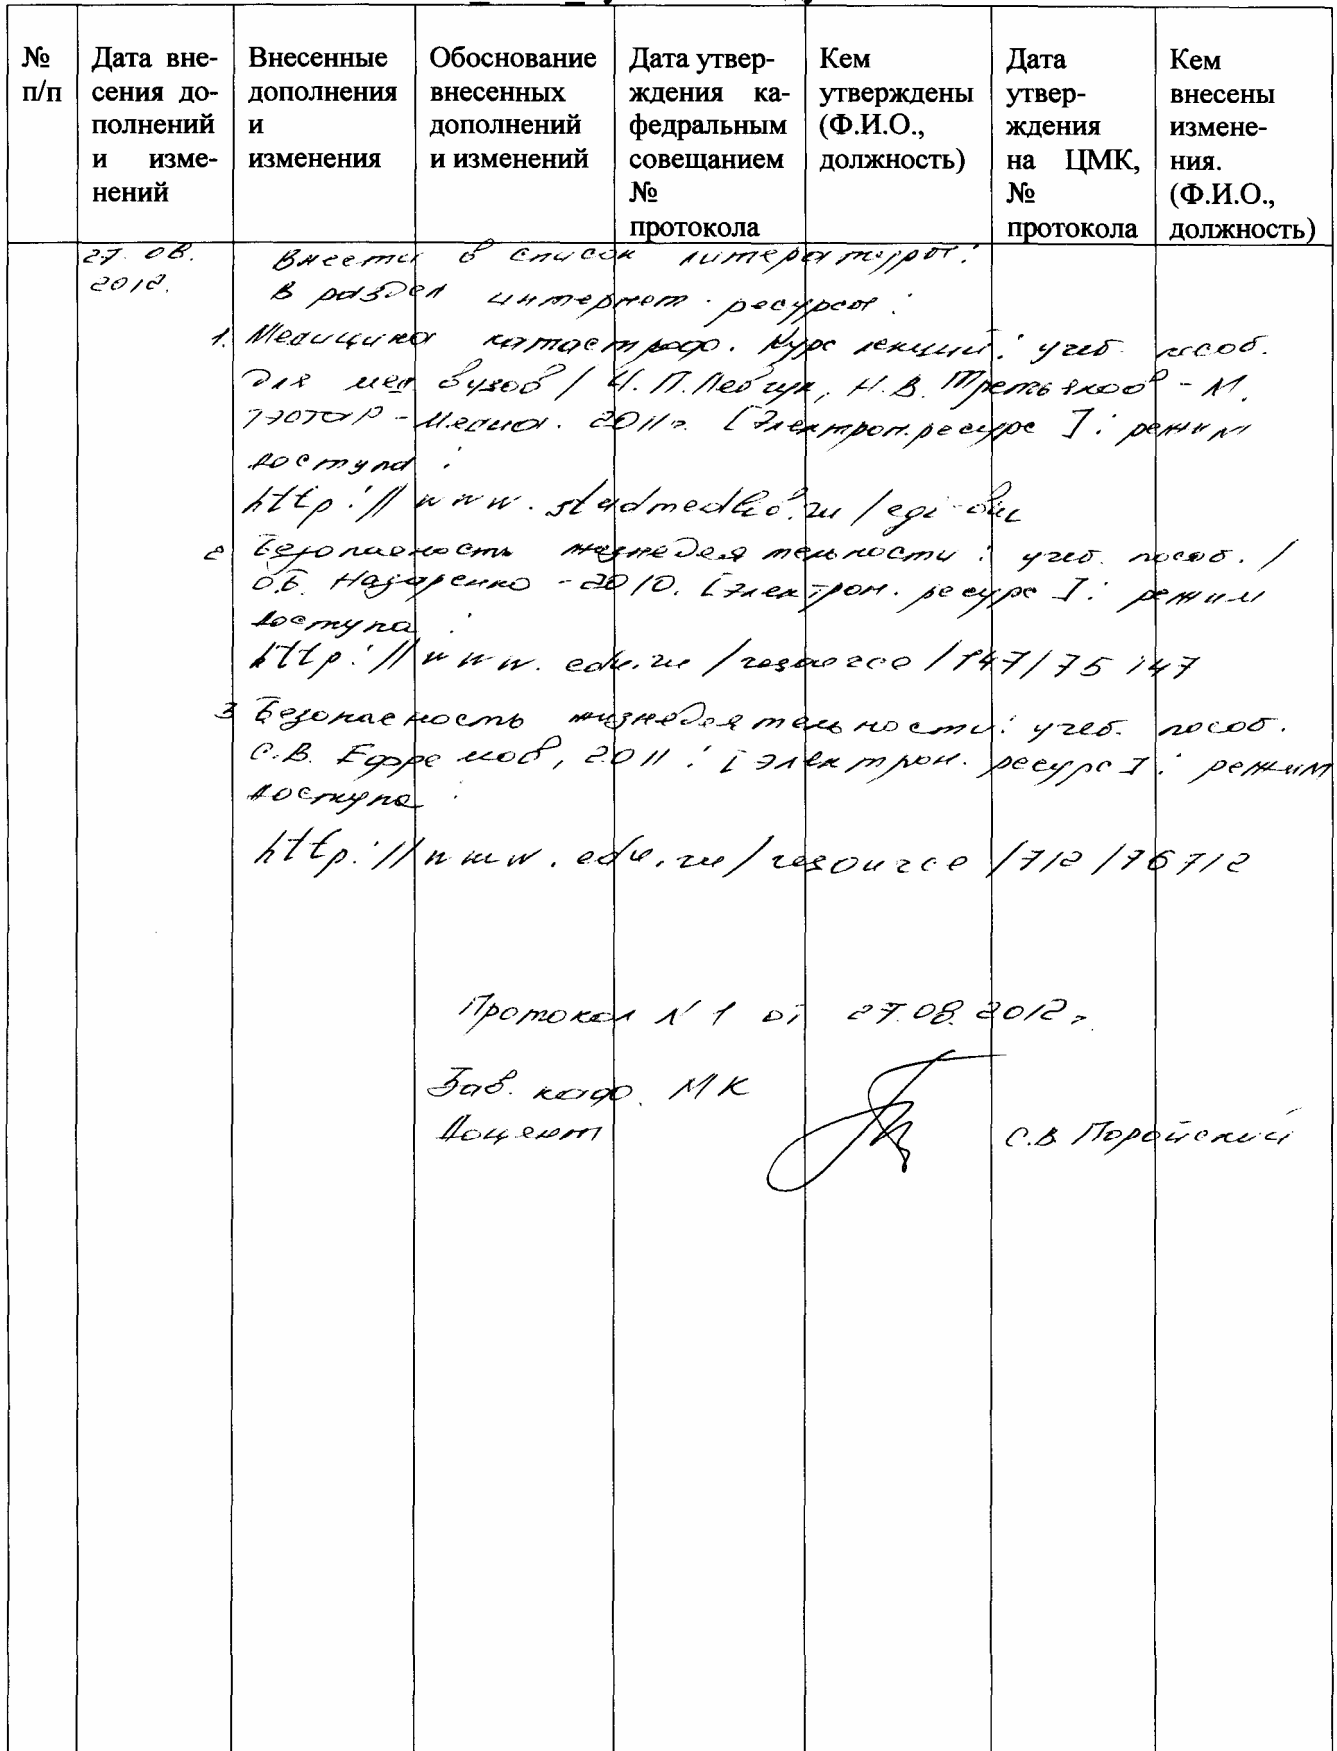 № п/п
Дата вне-
сения до-
полнений
и изме-
нений
Внесенные
дополнения
и
изменения
Обоснование
внесенных
дополнений
и изменений
Дата утвер-
ждения ка-
федральным
совещанием
№
протокола
Кем
утверждены
(Ф.И.О.,
должность)
Дата
утвер-
ждения
на ЦМК,
№
протокола
Кем
внесены
измене-
ния.
(Ф.И.О.,
должность)
27.08.
2012.
Внести в список литературы:
В раздел интернет-ресурсы:
1. Медицина катастроф. Курс лекций: учеб. пособ.
для мед вузов / И.П. Левчук, Н.В. Третьяков - М.
ГЭОТАР-Медиа. 2011г. [Электрон. ресурс]: режим
доступа:
http://www.studmedlib.ru/cgi-bin
2 Безопасность жизнедеятельности: учеб. пособ. /
О.Б. Назаренко - 2010. [Электрон. ресурс]: режим
доступа:
http://www.edu.ru/resource/147/75147
3 Безопасность жизнедеятельности: учеб. пособ.
С.В. Ефремов, 2011: [Электрон. ресурс]: режим
доступа:
http://www.edu.ru/resource/712/76712
Протокол № 1 от 27.08.2012г
Зав. каф. МК
Доцент С.В. Поройский